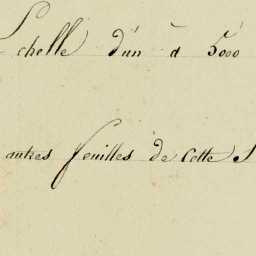 Echelle d'un à 5000
autres feuilles de Cette S